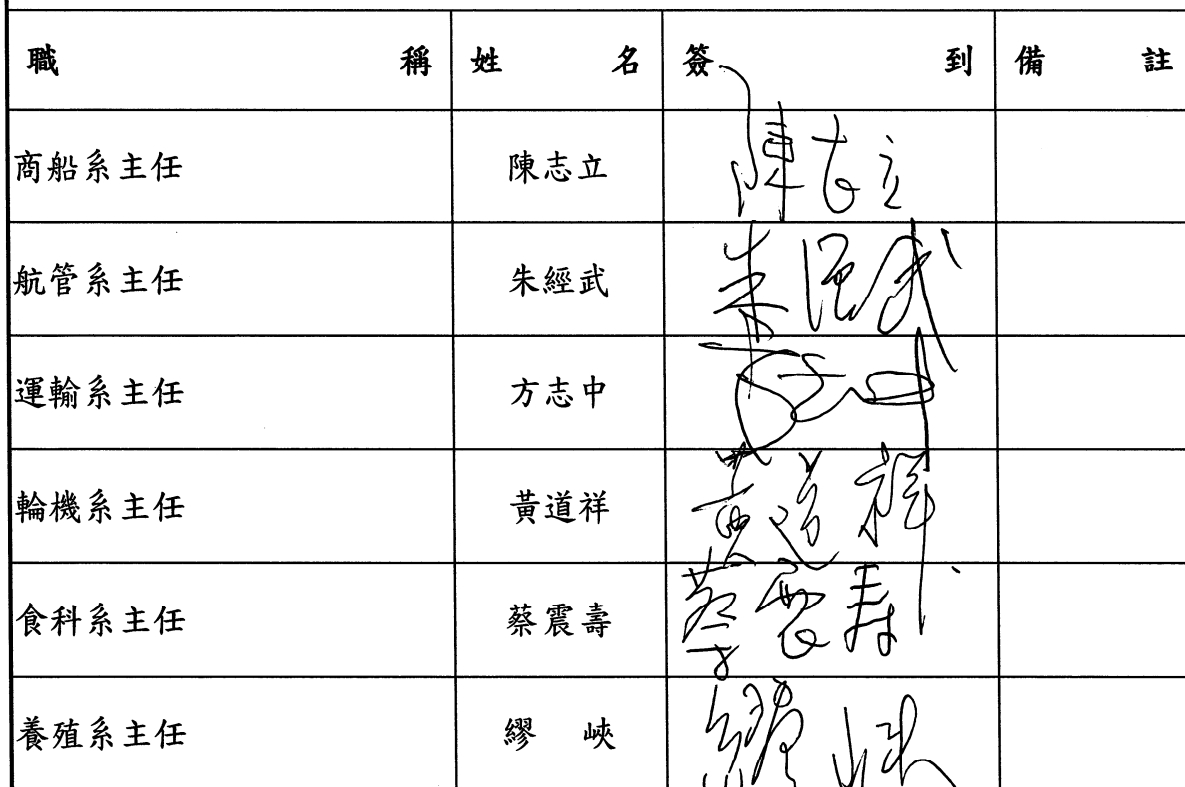 職稱 姓名 簽到 備註
商船系主任 陳志立 陳志立
航管系主任 朱經武 朱經武
運輸系主任 方志中 方志中
輪機系主任 黃道祥 黃道祥
食科系主任 蔡震壽 蔡震壽
養殖系主任 繆峽 繆峽